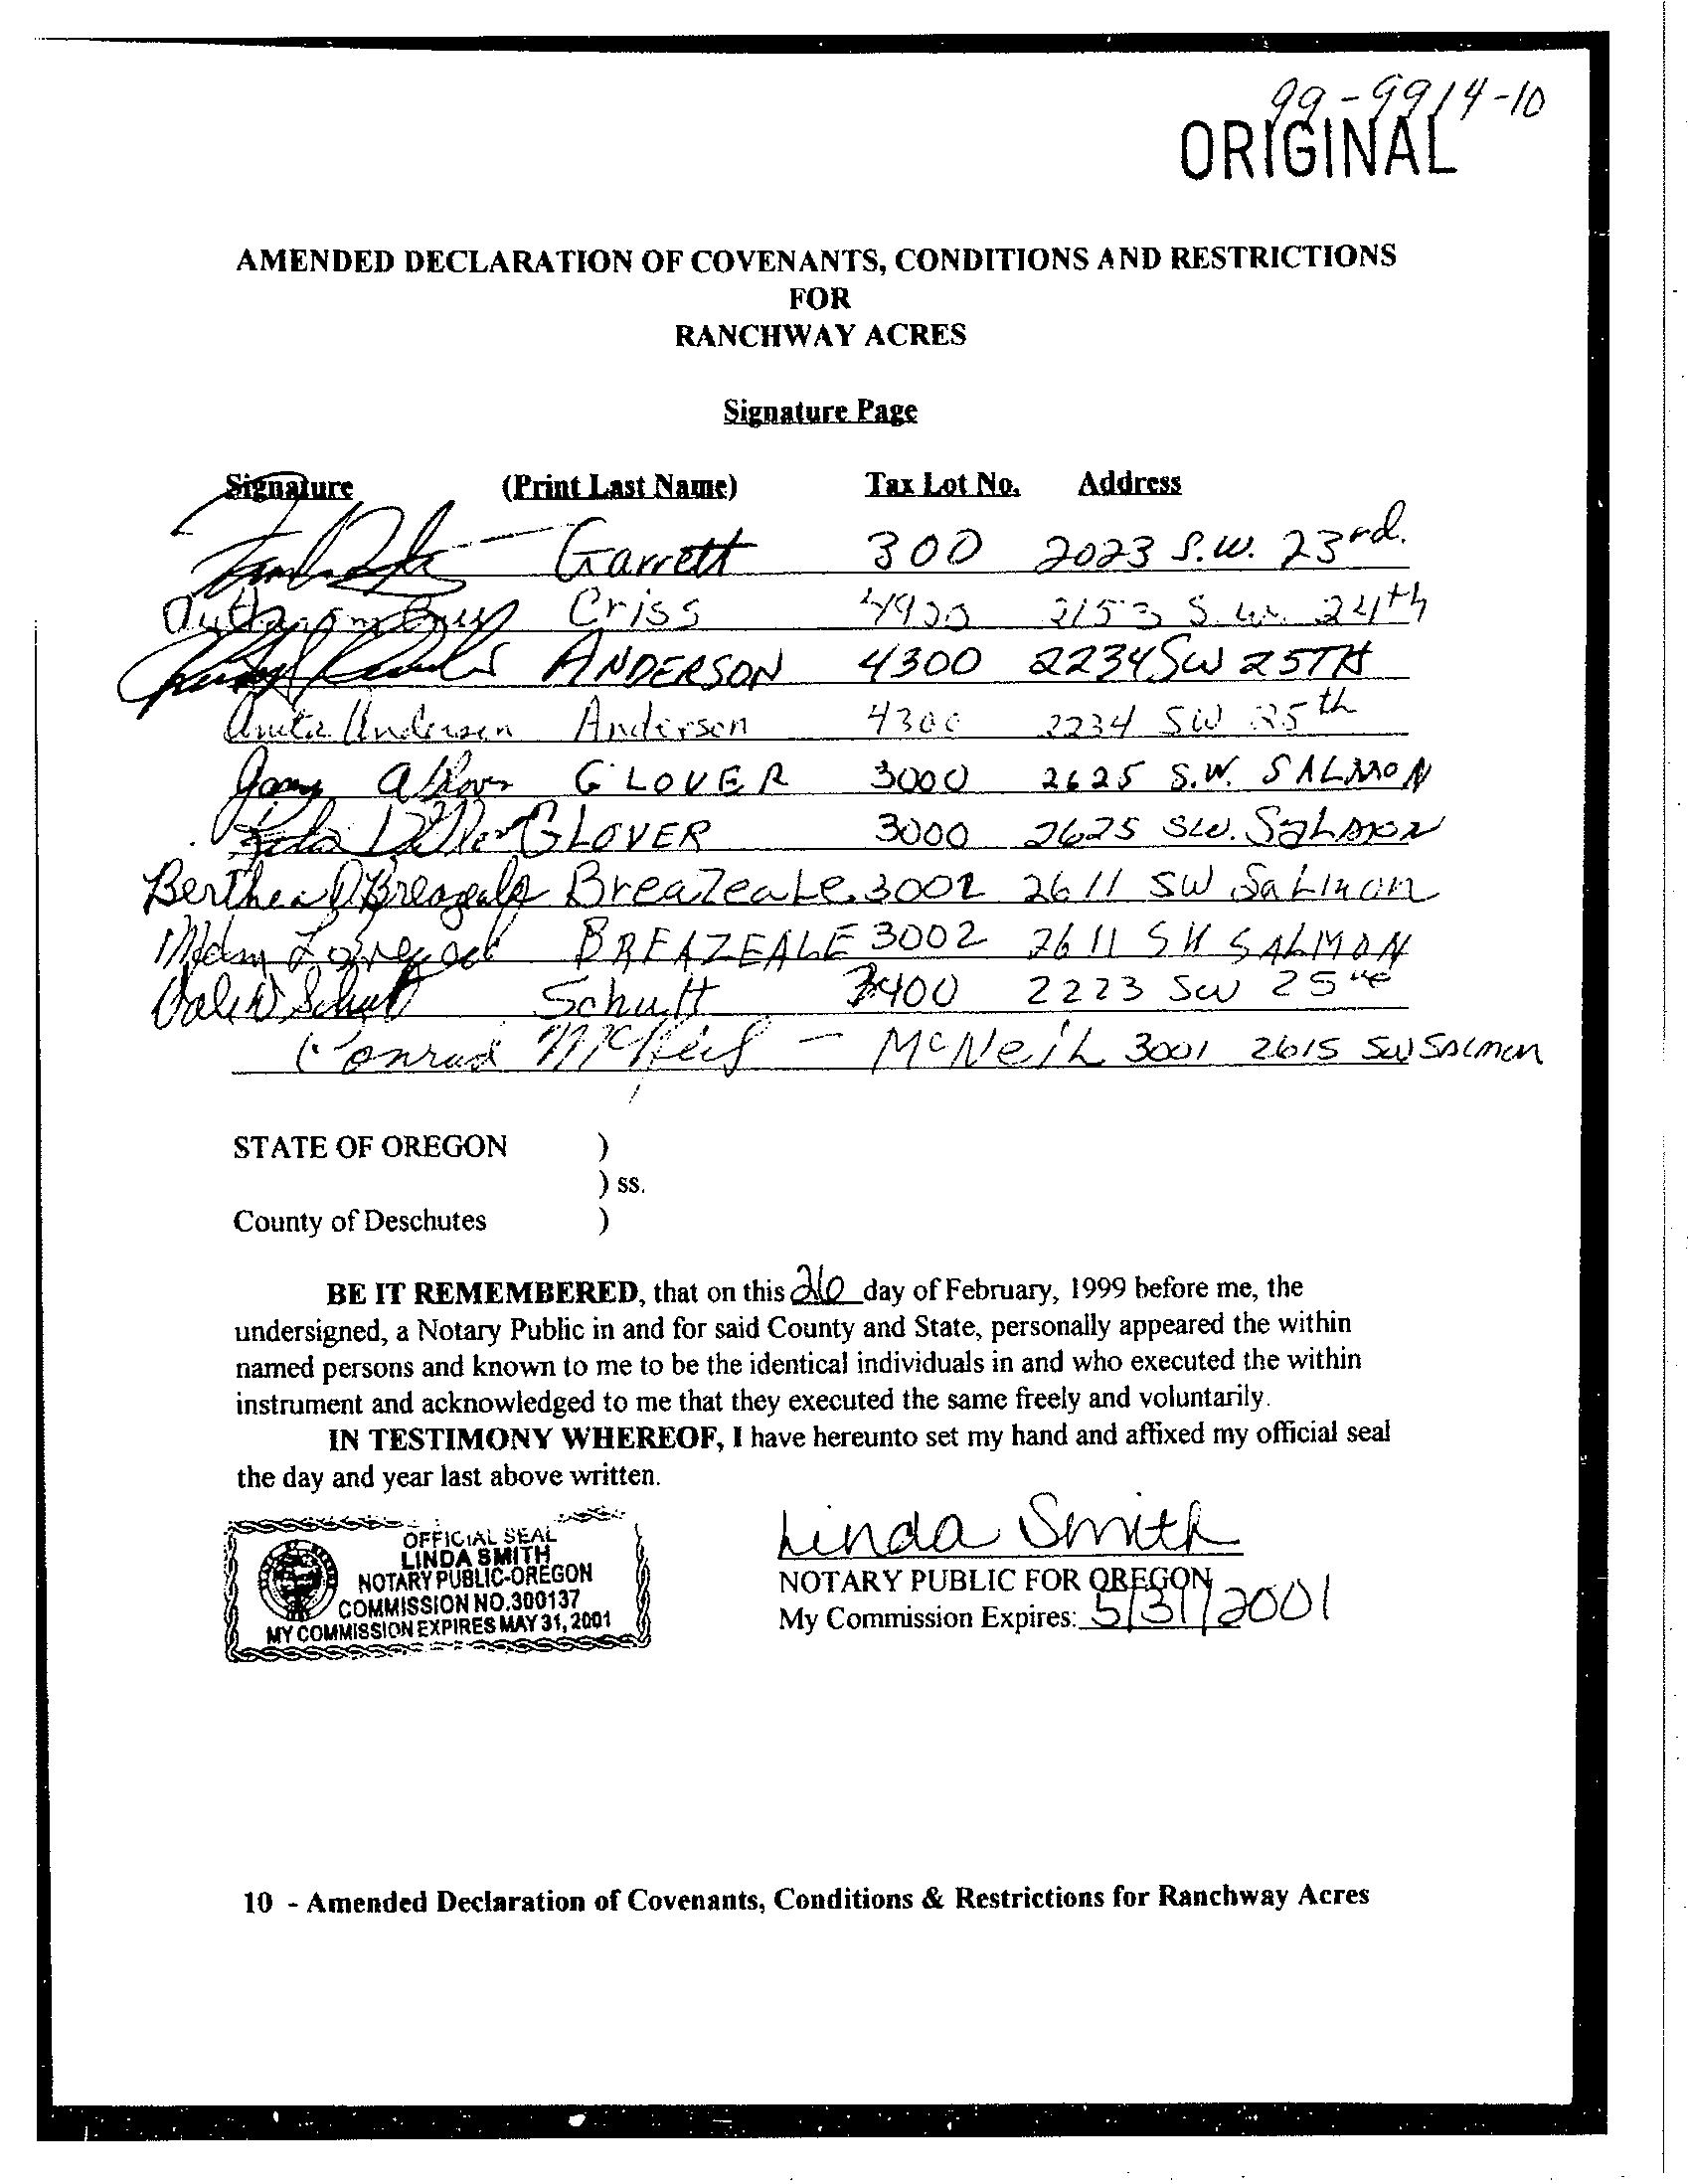 99-9914-10
ORIGINAL
AMENDED DECLARATION OF COVENANTS, CONDITIONS AND RESTRICTIONS
FOR
RANCHWAY ACRES
Signature Page
Signature (Print Last Name) Tax Lot No. Address
Garrett 300 2023 S.W. 23rd.
Criss 2153 S.W. 24th
ANDERSON 4300 2234 SW 25TH
Anita Anderson Anderson 4300 2234 SW 25th
Gary a Glover GLOVER 3000 2625 S.W. SALMON
GLOVER 3000 2625 SW. SaLmon
Bertha Breazeale BreazeaLe 3002 2611 SW SaLmon
BREAZEALE 3002 2611 SW SALMON
Dale W Schutt Schutt 3400 2223 SW 25
Conrad McNeil - McNeiL 3001 2615 SW SALMON
STATE OF OREGON )
) ss.
County of Deschutes )
BE IT REMEMBERED, that on this 26 day of February, 1999 before me, the
undersigned, a Notary Public in and for said County and State, personally appeared the within
named persons and known to me to be the identical individuals in and who executed the within
instrument and acknowledged to me that they executed the same freely and voluntarily.
IN TESTIMONY WHEREOF, I have hereunto set my hand and affixed my official seal
the day and year last above written.
OFFICIAL SEAL
LINDA SMITH
NOTARY PUBLIC-OREGON
COMMISSION NO.300137
MY COMMISSION EXPIRES MAY 31, 2001
Linda Smith
NOTARY PUBLIC FOR OREGON
My Commission Expires: 5/31/2001
10 - Amended Declaration of Covenants, Conditions & Restrictions for Ranchway Acres